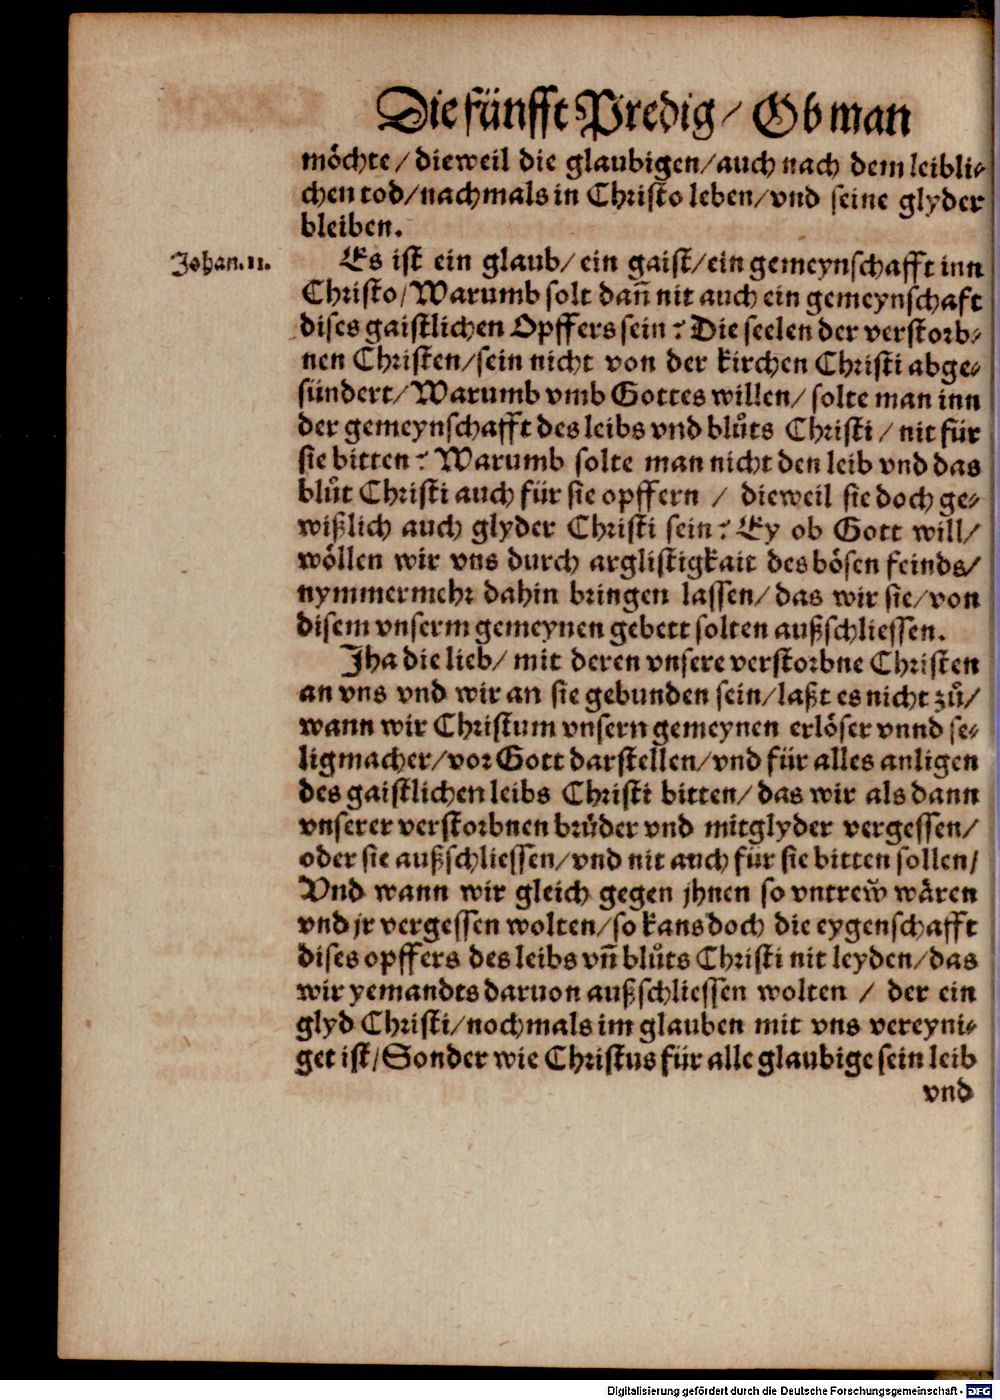 Die fünfft Predig / Ob man
möchte / dieweil die glaubigen / auch nach dem leibli⸗
chen tod / nachmals in Christo leben / vnd seine glyder
bleiben.
Johan. 11.
Es ist ein glaub / ein gaist / ein gemeynschafft inn
Christo / Warumb solt dañ nit auch ein gemeynschaft
dises gaistlichen Opffers sein? Die seelen der verstorb⸗
nen Christen / sein nicht von der kirchen Christi abge⸗
sündert / Warumb vmb Gottes willen / solte man inn
der gemeynschafft des leibs vnd blůts Christi / nit für
sie bitten? Warumb solte man nicht den leib vnd das
blůt Christi auch für sie opffern / dieweil sie doch ge⸗
wißlich auch glyder Christi sein? Ey ob Gott will /
wöllen wir vns durch arglistigkait des bösen feinds /
nymmermehr dahin bringen lassen / das wir sie / von
disem vnserm gemeynen gebett solten außschliessen.
Jha die lieb / mit deren vnsere verstorbne Christen
an vns vnd wir an sie gebunden sein / laßt es nicht zů /
wann wir Christum vnsern gemeynen erlöser vnnd se⸗
ligmacher / vor Gott darstellen / vnd für alles anligen
des gaistlichen leibs Christi bitten / das wir als dann
vnserer verstorbnen brůder vnd mitglyder vergessen /
oder sie außschliessen / vnd nit auch für sie bitten sollen /
Vnd wann wir gleich gegen jhnen so vntrew̃ wären
vnd jr vergessen wolten / so kans doch die eygenschafft
dises opffers des leibs vñ blůts Christi nit leyden / das
wir yemandts daruon außschliessen wolten / der ein
glyd Christi / nochmals im glauben mit vns vereyni⸗
get ist / Sonder wie Christus für alle glaubige sein leib
vnd
Digitalisierung gefördert durch die Deutsche Forschungsgemeinschaft - DFG